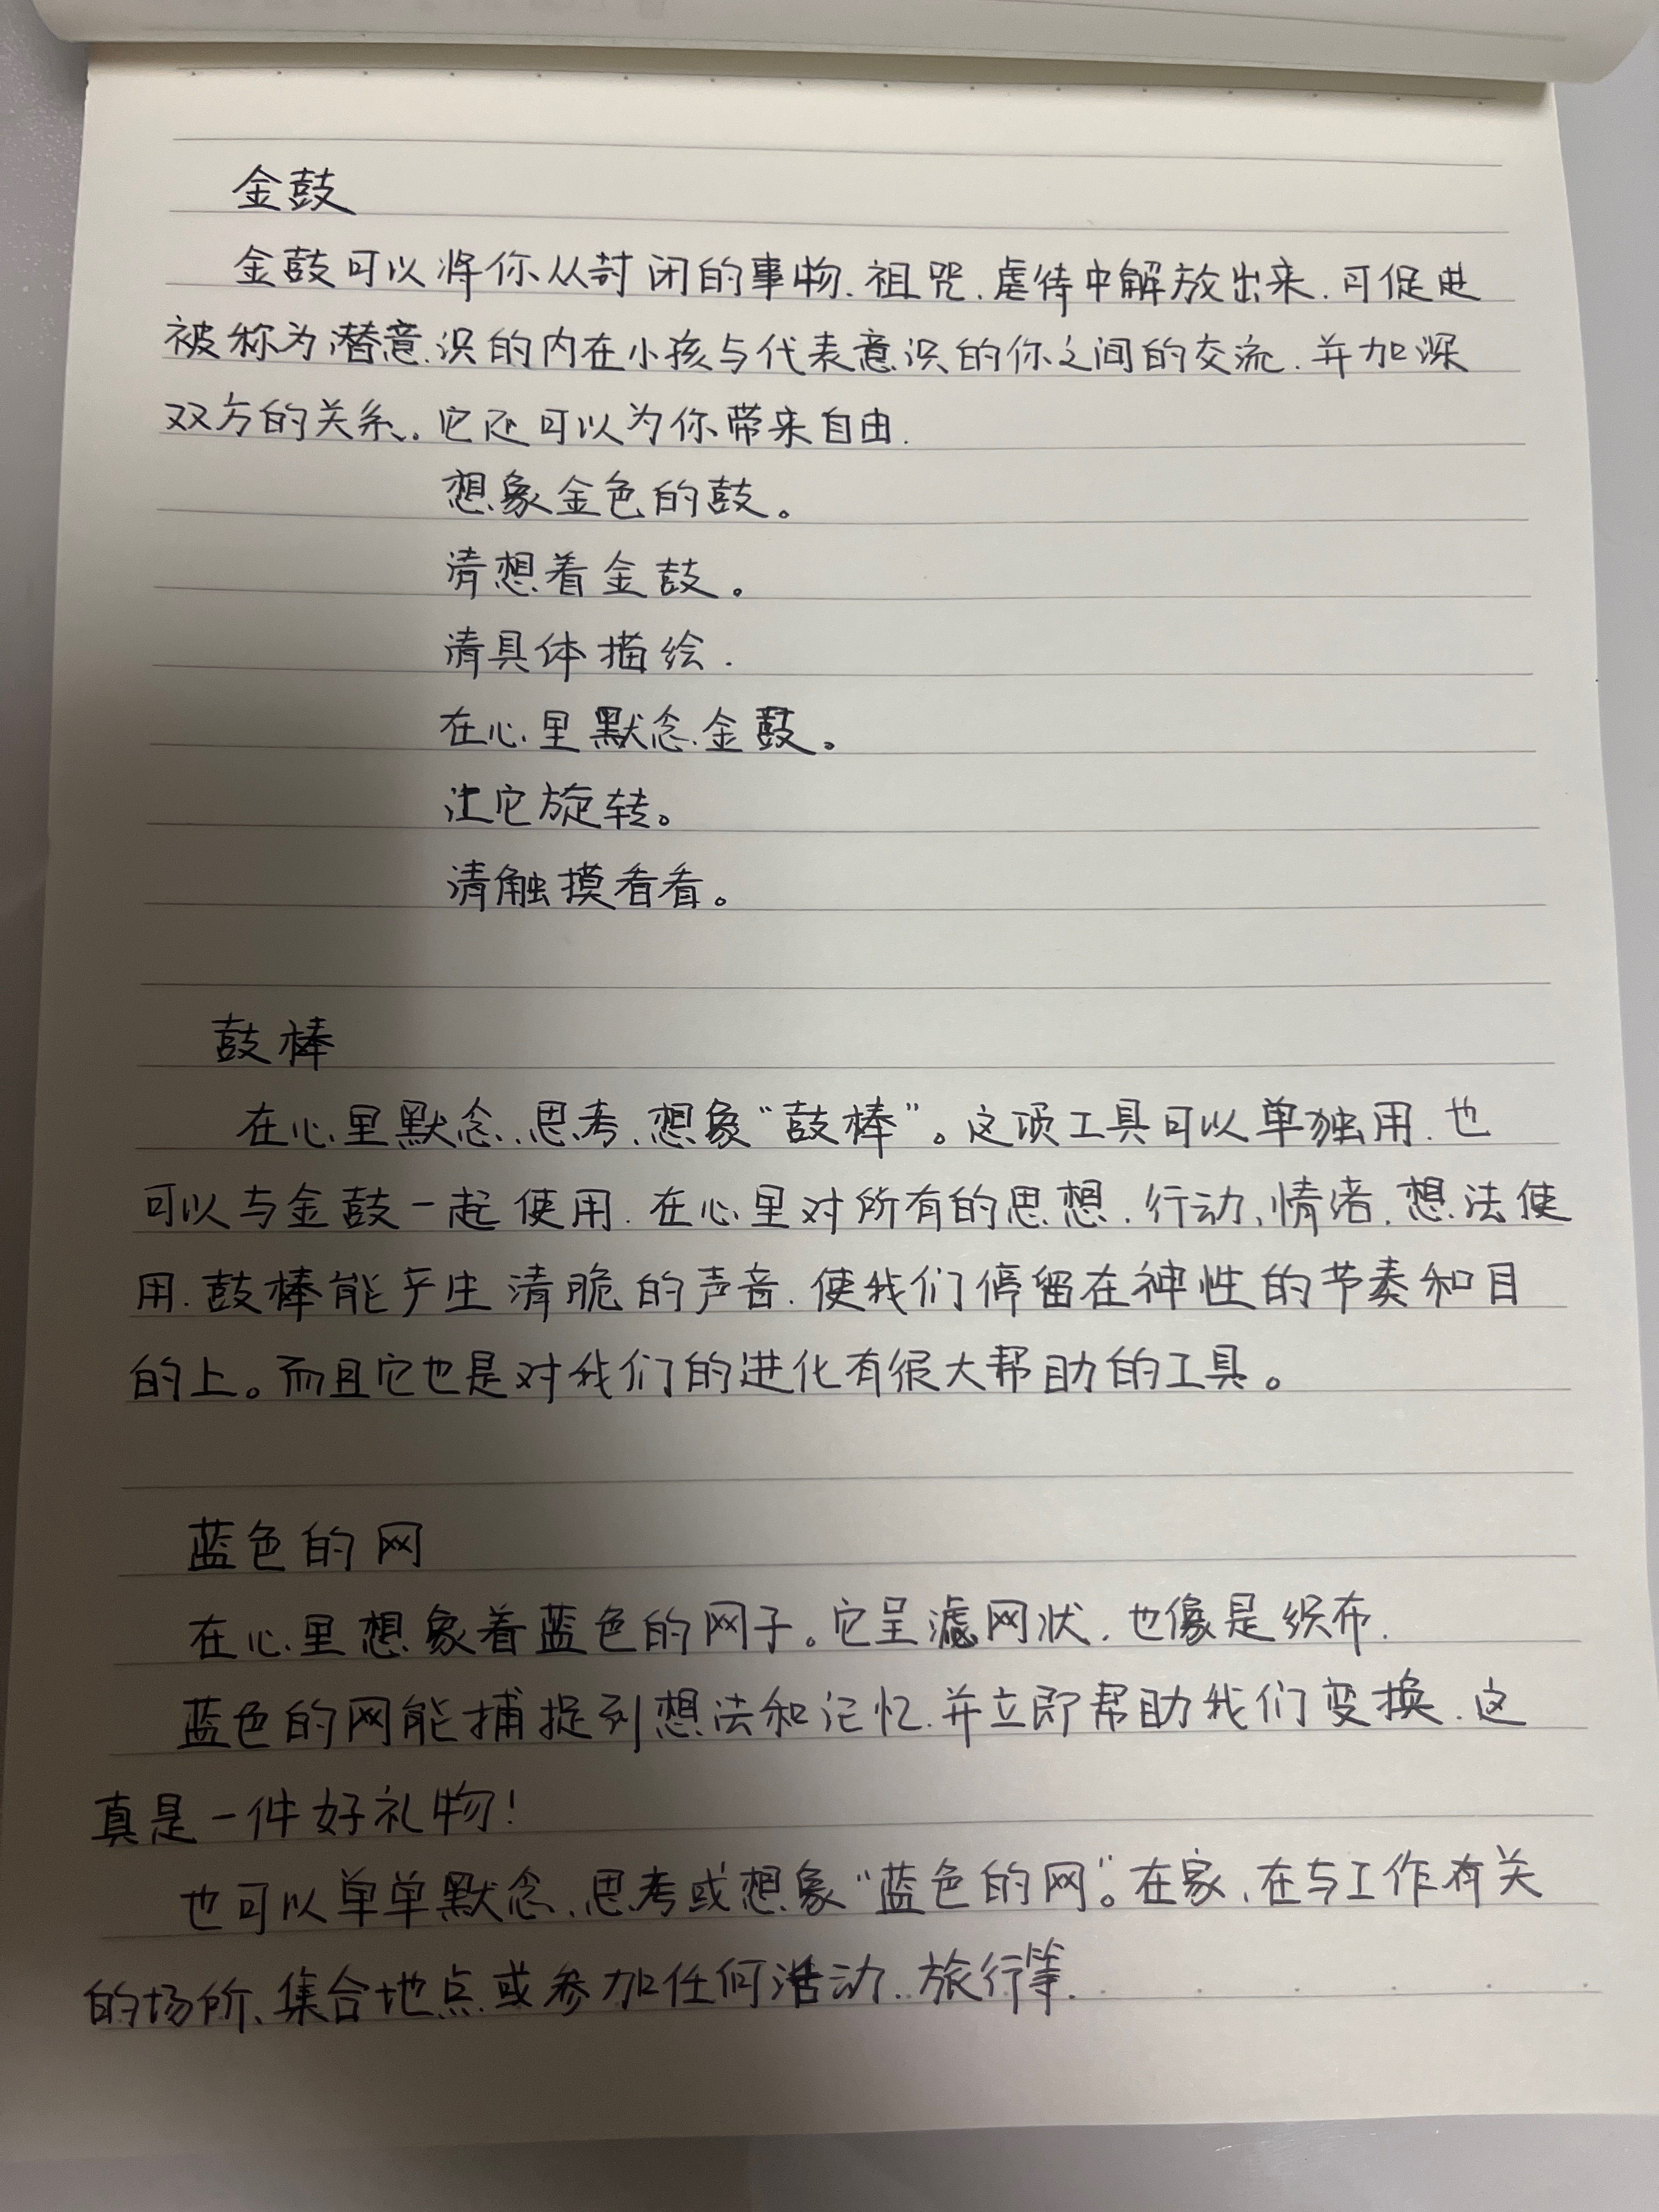 金鼓
金鼓可以将你从封闭的事物.祖咒.虐待中解放出来.可促进
被称为潜意识的内在小孩与代表意识的你之间的交流.并加深
双方的关系。它还可以为你带来自由.
想象金色的鼓。
请想着金鼓。
请具体描绘.
在心里默念金鼓。
让它旋转。
请触摸看看。
鼓棒
在心里默念、思考、想象“鼓棒”。这项工具可以单独用.也
可以与金鼓一起使用.在心里对所有的思想.行动、情绪.想法使
用.鼓棒能产生清脆的声音.使我们停留在神性的节奏和目
的上。而且它也是对我们的进化有很大帮助的工具。
蓝色的网
在心里想象着蓝色的网子。它呈滤网状.也像是织布.
蓝色的网能捕捉到想法和记忆.并立即帮助我们变换.这
真是一件好礼物!
也可以单单默念、思考或想象“蓝色的网”。在家、在与工作有关
的场所、集合地点或参加任何活动.旅行等.